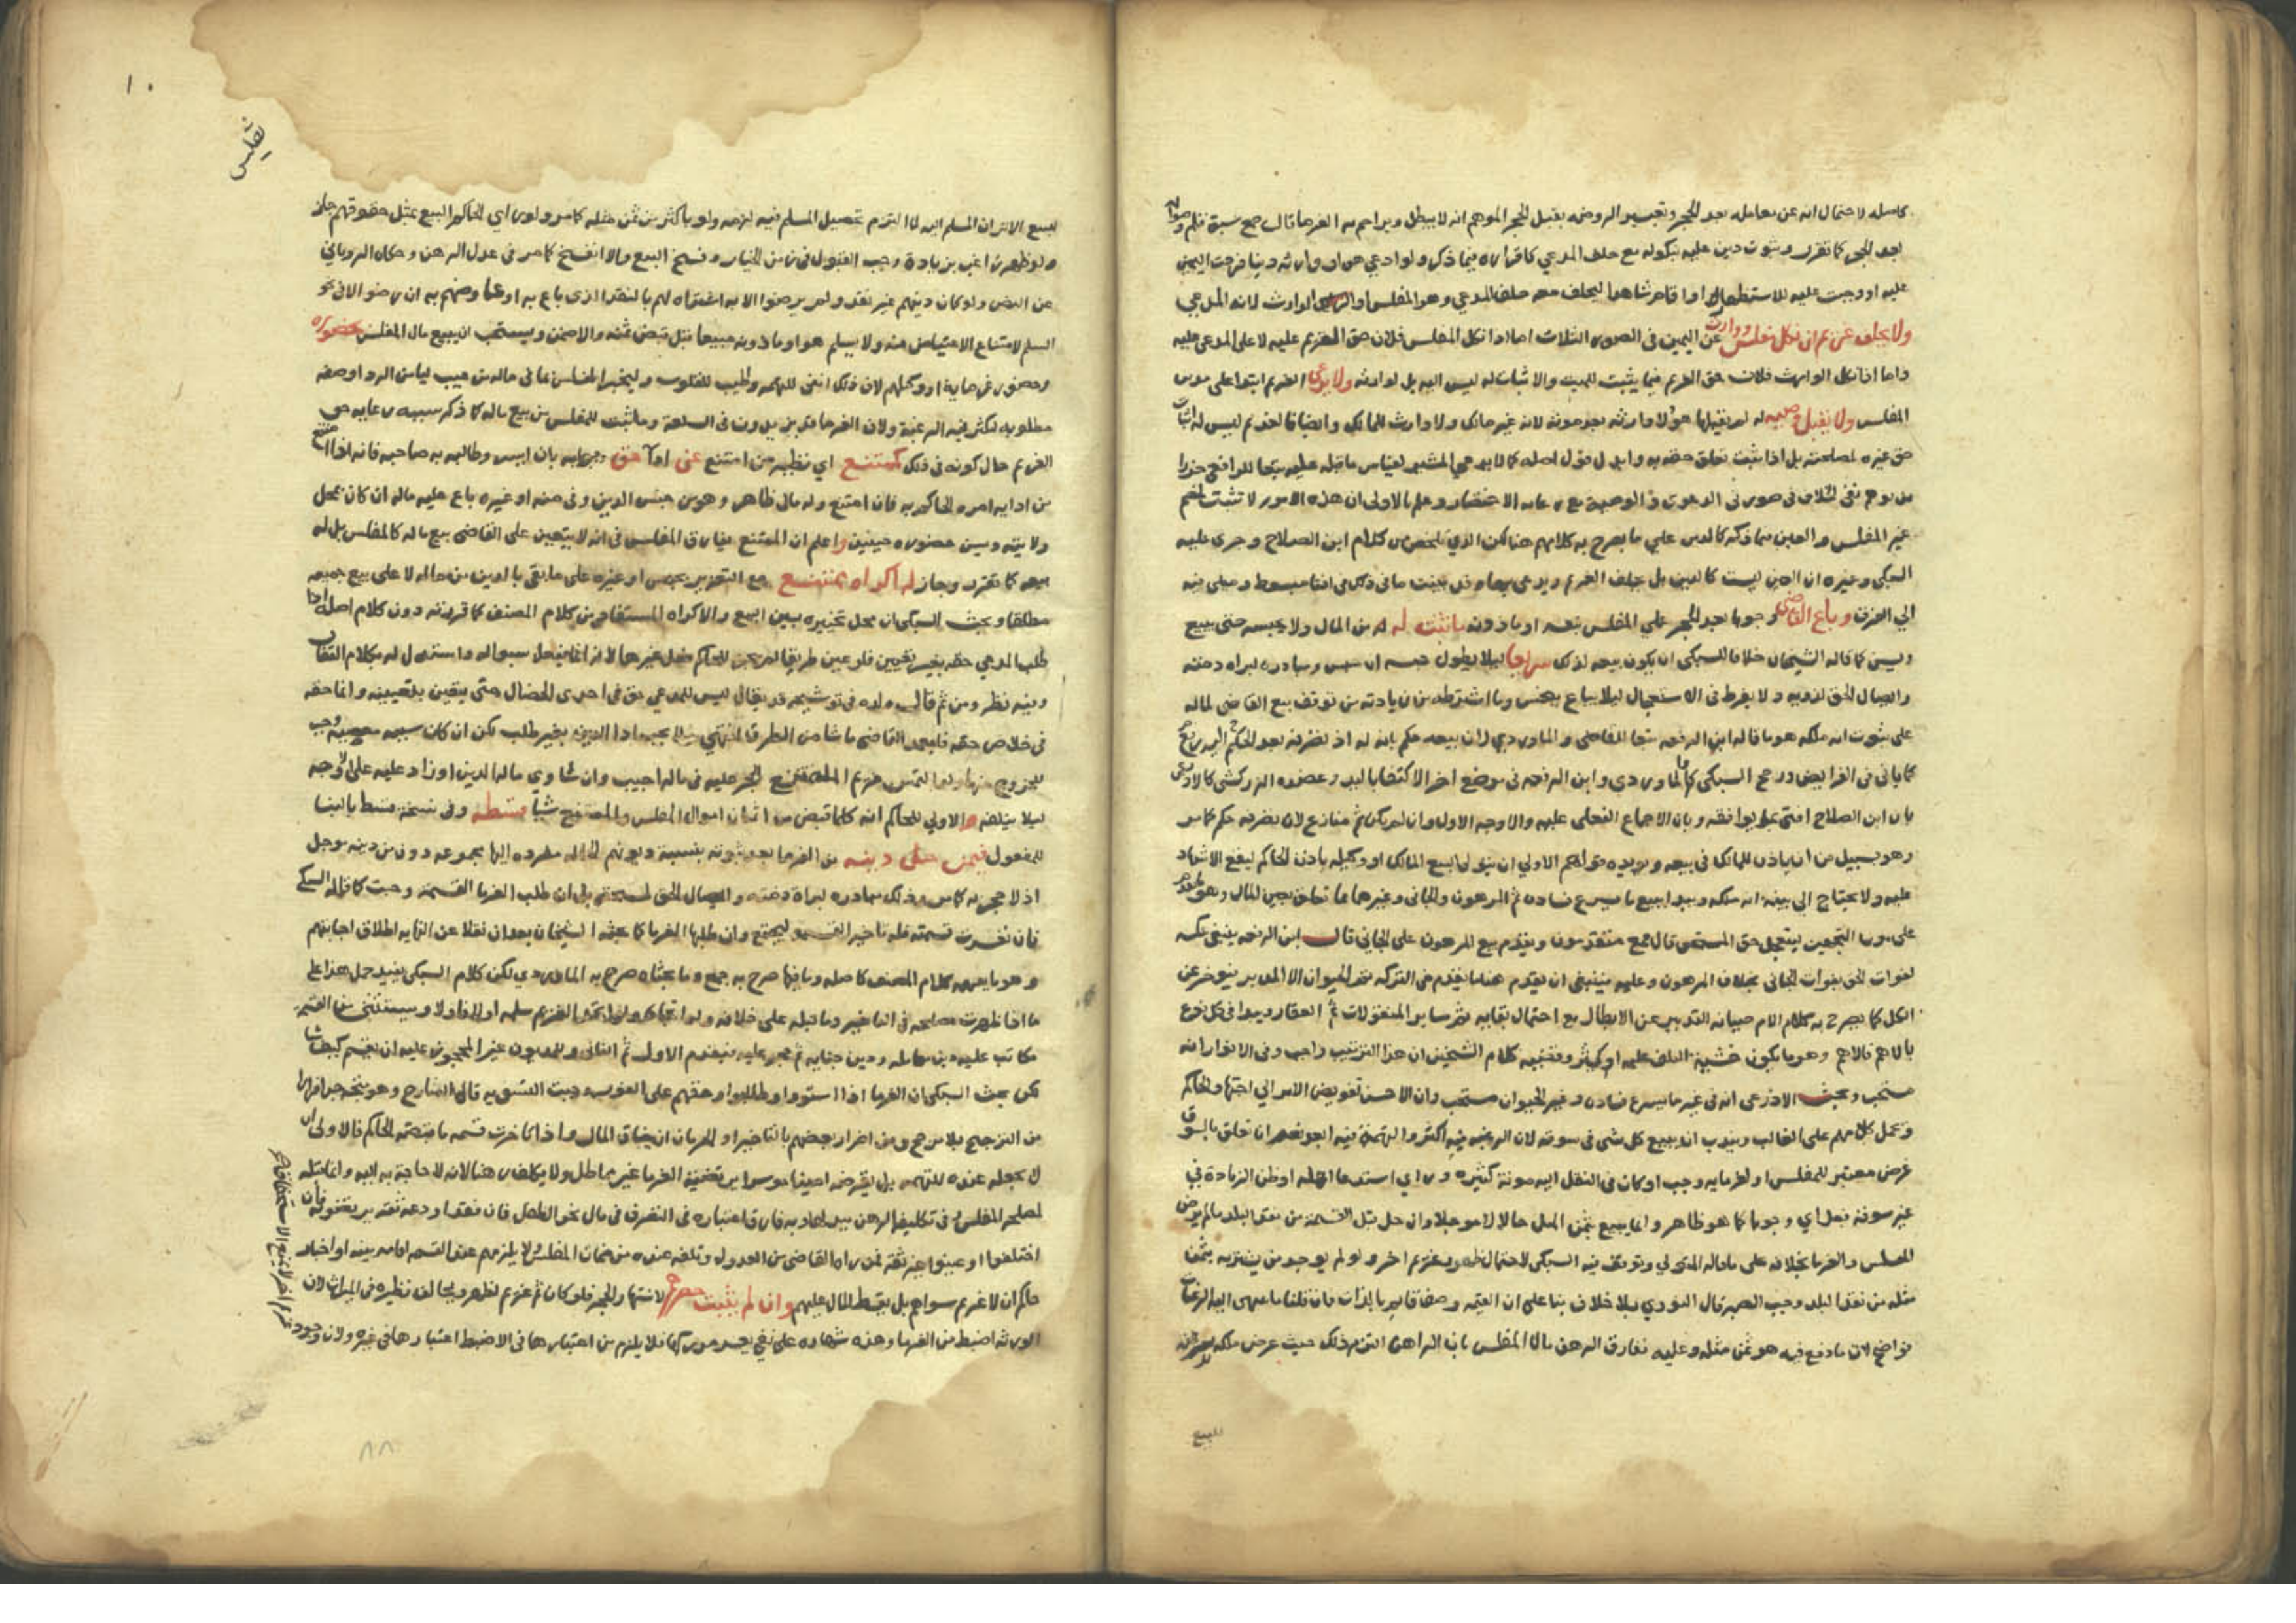 كاصله لاحتمال انه عن معامله بعد الحجر وتعبير الروضه بقبل الحجر الموهم انه لا يبطل ويزاحم به الغرما قال جمع سبق قلم وصوابه
بعد الحجر كما تقرر وثبوت دين عليه بنكوله مع حلف المدعي كاقراره فيما ذكر ولو ادعي هو او وارثه دينا فردت اليمين
عليه او وجبت عليه للاستظهار او اقام شاهدا ليحلف معه حلف المدعي وهو المفلس او الوارث لانه المدعي
ولا يحلف غريم ان نكل مفلس ووارث عن اليمين في الصور الثلاث اما اذا نكل المفلس فلان حق الغريم عليه لا على المدعى عليه
واما اذا نكل الوارث فلان حق الغريم فيما يثبت للميت والاثبات له ليس اليه بل لوارثه ولا يدعي الغريم ابتدا على مدين
المفلس ولا يقبل وصيه له لم يقبلها هو ولا وارثه بعد موته لانه غير مالك ولا وارث للمالك وايضا فالغريم ليس له اثبات
حق غيره لمصلحته بل اذا ثبت تعلق حقه به وابدل قول اصله كما لا يدعي المشير لقياس ما قبله عليه تبعا للرافعي حذرا
من توهم نفي الخلاف في صورتي الدعوى والوصية مع رعايه الاختصار وعلم بالاولى ان هذه الامور لا تثبت لخصم
غير المفلس والعين فيما ذكر كالدين علي ما يصرح به كلامهم هنا لكن الذي تلخص من كلام ابن الصلاح وجرى عليه
السبكي وغيره ان العين ليست كالدين بل يحلف الغريم ويدعي بها وقد بينت ما في ذلك في افتا مبسوط وميلي فيه
الي الفرق وباع القاضي وجوبا بعد الحجر علي المفلس بنفسه او ماذونه ما ثبت له له من المال ولا يحبسه حتى يبيع
ويسن كما قاله الشيخان خلافا للسبكي ان يكون بيعه لذلك سريعا ليلا يطول حبسه ان حبس ومبادره لبراه ذمته
وايصال الحق لذويه ولا يفرط في الاستعجال ليلا يباع ببخس وما اشترطه من زيادته من توقف بيع القاضي لماله
على ثبوت انه ملكه هو ما قاله ابن الرفعه تبعا للقاضي والماوردي لان بيعه حكم بانه له اذ تصرفه بعد الحكم اليه رافع
كما ياتي في الفرايض ورجح السبكي كالماوردي وابن الرفعه في موضع اخر الاكتفا باليد وعضده الزركشي كالاذرعي
بان ابن الصلاح افتى بما يوافقه وبان الاجماع الفعلي عليه والاوجه الاول وان لم يكن ثم منازع لان تصرفه حكم كما مر
وهو بسبيل من ان ياذن للمالك في بيعه ويويده قولهم الاولي ان يتولي البيع المالك او وكيله باذن الحاكم ليقع الاشهاد
عليه ولا يحتاج الي بينه انه ملكه ويبدا ببيع ما يسرع فساده ثم المرهون والجاني وغيرهما مما تعلق بعين المال
حق المستحق قال جمع متقدمون ويقدم بيع المرهون على الجاني قال ابن الرفعه ينبغي عكسه
لفوات الحق بفوات الجاني بخلاف المرهون وعليه فينبغي ان يقدم هنا ما يقدم في التركه ثم الحيوان الا المدبر فيوخر عن
الكل كما يصرح به كلام الام صيانه للتدبير عن الابطال مع احتمال بقايه ثم ساير المنقولات ثم العقار ويبدا في كل نوع
بالاهم فالاهم وهو ما يكون خشية التلف عليه اوكثر وقضيه كلام الشيخين ان هذا الترتيب واجب وفي الانوار انه
مستحب وبحث الاذرعي انه في غير ما يسرع فساده وغير الحيوان مستحب وان الاحسن تفويض الامر الي اجتهاد الحاكم
وتحمل كلامهم على الغالب ويندب ان يبيع كل شي في سوقه لان الرغبة فيه اكثر والتهمة فيه ابعد نعم ان تعلق بالسوق
غرض معتبر للمفلس او لغرمايه وجب او كان في النقل اليه مونة كثيره وراي استدعا اهله او ظن الزيادة في
غير سوقه فعل اي وجوبا كما هو ظاهر وانما يبيع بثمن المثل حالا لا موجلا وان حل قبل القسمه من نقد البلد ما لم يرض
المفلس والغرما بخلافه على ما قاله المتولي وتوقف فيه السبكي لاحتمال ظهور غريم اخر ولو لم يوجد من يشتريه بثمن
مثله من نقد البلد وجب الصبر قال النووي بلا خلاف بنا على ان القيمه وصف قايم بالذات فان قلنا ما ينتهي اليه الرغبات
فواضح لان ما دفع فيه هو ثمن مثله وعليه نفارق الرهن مال المفلس بان الراهن التزم ذلك حيث عرض ملكه
للبيع
١٠
تفليس
للبيع الا تري ان المسلم اليه لما التزم تحصيل المسلم فيه لزمه ولو باكثر من ثمن مثله كما مر ولو راي الحاكم البيع بمثل حقوقهم جاز
ولو ظهر راغب بزيادة وجب القبول في زمن الخيار وفسخ البيع والا انفسخ كما مر في عدل الرهن وحكاه الروياني
عن النص ولو كان دينهم غير نقد ولم يرضوا الا به اشتراه لهم بالنقد الذي باع به او عاوضهم به ان رضوا الا في نحو
السلم لامتناع الاعتياض عنه ولا يسلم هو او ماذونه مبيعا قبل قبض ثمنه والا ضمن ويستحب ان يبيع مال المفلس بحضوره
وحضور غرمايه او وكيلهم لان ذلك انفى للتهمه واطيب للقلوب وليخبر المفلس بما في ماله من عيب ليامن الرد او صفه
مطلوبه لتكثر فيه الرغبة ولان الغرما قد يزيدون في السلعة وما ثبت للمفلس من بيع ماله كما ذكر سببه رعايه حق
الغريم حال كونه في ذلك كممتنع اي نظير من امتنع عن ادا حق وجب عليه بان ايسر وطالبه به صاحبه فانه اذا امتنع
من ادايه امره الحاكم به فان امتنع وله مال ظاهر وهو من جنس الدين وفي منه او غيره باع عليه ماله ان كان بمحل
ولايته وسن حضوره حينئذ واعلم ان الممتنع يفارق المفلس في انه لا يتعين على القاضي بيع ماله كالمفلس بل له
بيعه كما تقرر وجاز له اكراه ممتنع مع التعزير بحبس او غيره على ما بقى بالدين من ماله لا على بيع جميعه
مطلقا وبحث السبكي ان محل تخييره بين البيع والاكراه المستفاد من كلام المصنف كما قررته دون كلام اصله اذا
طلب المدعي حقه بغير تعيين فلو عين طريقا لم يجز للحاكم فعل غيرها لانه انما يفعل بسواله واستدل له بكلام القفال
وفيه نظر ومن ثم قال ولده في توشيحه قد يقال ليس للمدعي حق في احدى الخصال حتى يتعين بتعيينه وانما حقه
في خلاص حقه فليعتمد القاضي ما شا من الطرق نعم يجب ادا الدين بغير طلب لكن ان كان سببه معصية وجب
للخروج منها ولو التمس غريم الممتنع الحجر عليه في ماله اجيب وان ساوي ماله الدين او زاد عليه على الاوجه
ليلا يتلفه والاولي للحاكم انه كلما قبض من اثمان اموال المفلس والممتنع شيا قسطه وفي نسخة قسط بالبنا
للمفعول فيمن حل دينه من الغرما بعد ثبوته بنسبة ديونهم الحاله مفرده الي مجموعه دون من دينه موجل
اذ لا حجر به كما مر وذلك مبادره لبراة ذمته وايصال الحق لمستحقه بل ان طلب الغرما القسمة وجبت كما قاله السبكي
فان تعسرت قسمته فله تاخير القسمه ليجتمع وان طلبها الغرما كما بحثه الشيخان بعد ان نقلا عن النهايه اطلاق اجابتهم
وهو ما يفهمه كلام المصنف كاصله وما فيها صرح به جمع وما بحثاه صرح به الماوردي لكن كلام السبكي يفيد حمل هذا على
ما اذا ظهرت مصلحه في التاخير وما قبله على خلافه ولو اتحد الغريم سلمه اولا فاولا ويستثني من القسمه
مكاتب عليه دين معامله ودين جنايه ثم حجر عليه فيقدم الاول ثم الثاني وللمديون غير المحجور عليه ان يقسم كيف شا
لكن بحث السبكي ان الغرما اذا استووا وطلبوا حقهم على الفور وجبت التسويه قال الشارح وهو متجه حذرا من
من الترجيح بلا مرجح ومن اضرار بعضهم بالتاخير او الحرمان ان ضاق المال واذا تاخرت قسمه ما قبضه الحاكم فالاولى ان
لا يجعله عنده للتهمه بل يقرضه امينا موسرا يرتضيه الغرما غير مماطل ولا يكلف رهنا لانه لا حاجة به اليه وانما قبله
لمصلحه المفلس وفي تكليفه الرهن سد لها وبه فارق اعتباره في التصرف في مال نحو الطفل فان فقد اودعه ثقة يرتضونه فان
اختلفوا او عينوا غير ثقة فمن راه القاضي من العدول وتلفه عنده من ضمان المفلس ولا يلزمهم عند القسمه اقامه بينه او اخبار
حاكم ان لا غريم سواهم بل يقسط المال عليهم وان لم يثبت حصره لاشتهار الحجر فلو كان ثم غريم لظهر ويخالف نظيره في الميراث لان
الورثه اضبط من الغرما وهذه شهاده على نفي يعسر مدركها فلا يلزم من اعتبارها في الاضبط اعتبارها في غيره ولان وجود
غريم اخر لا يمنع الاستحقاق
٨٨